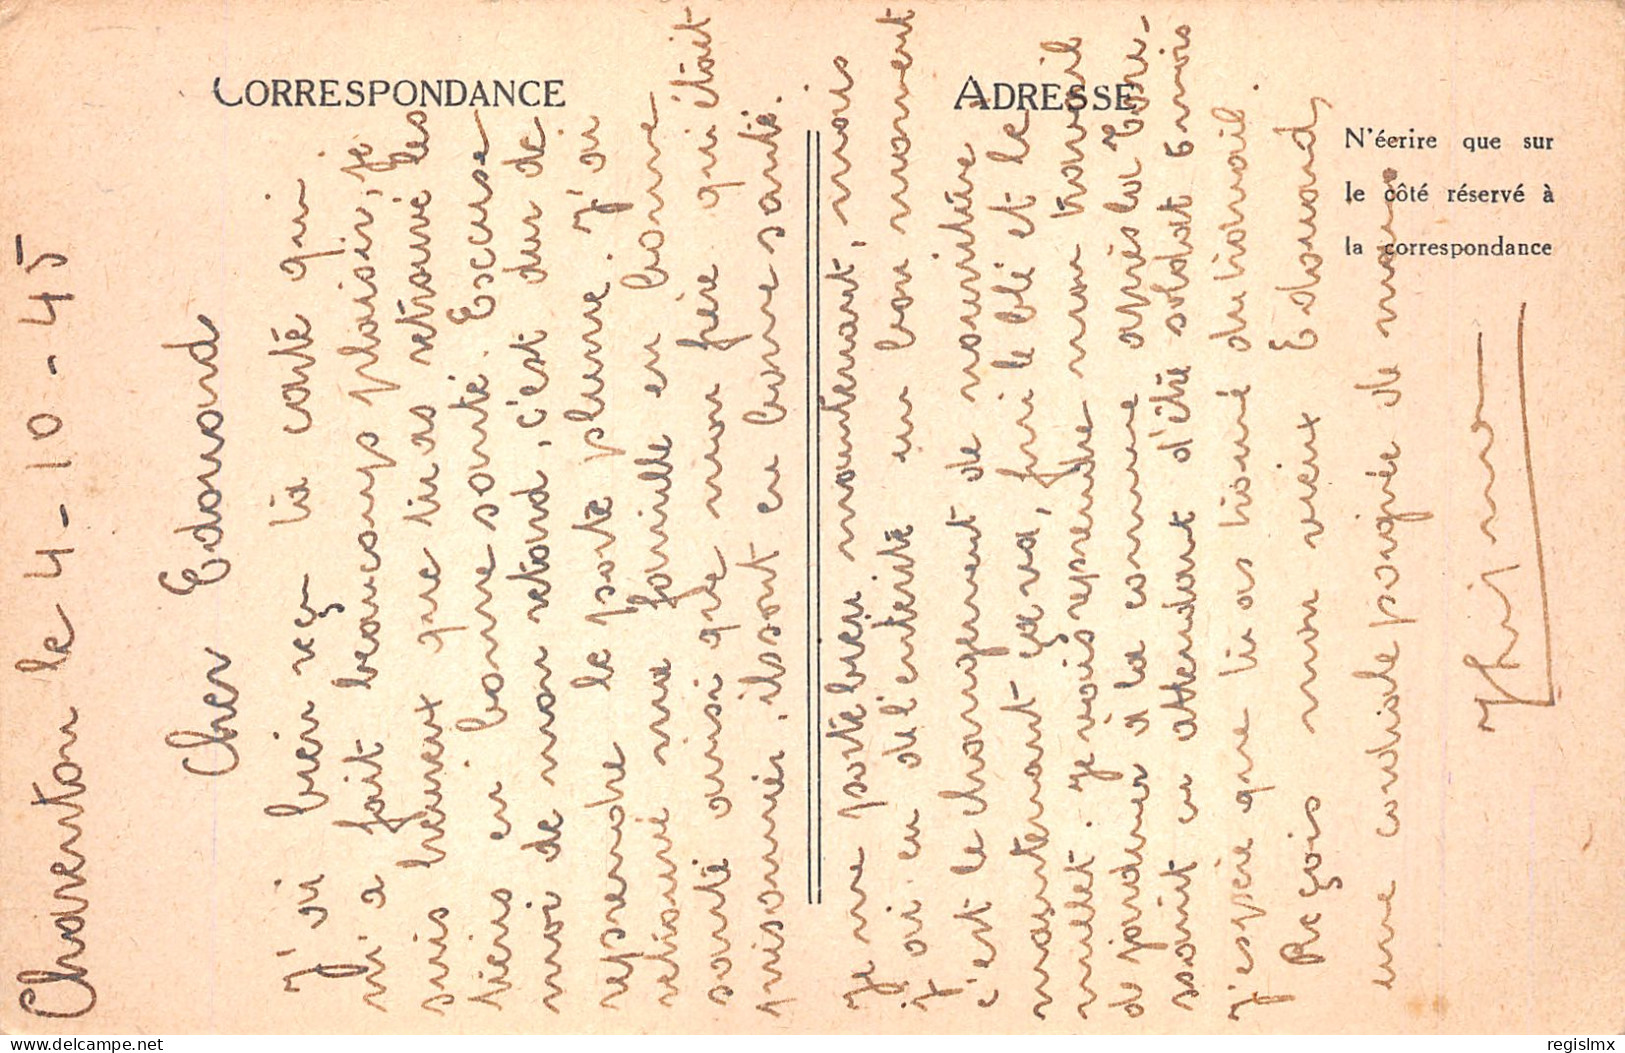 CORRESPONDANCE
ADRESSE
N'écrire que sur
le côté réservé à
la correspondance
Charenton le 4-10-45
Cher Edouard
J'ai bien reçu ta carte qui
m'a fait beaucoups plaisir, je
suis heureux que tu as retrouvé les
tiens en bonne santé. Escuse
moi de mon retard, c'est dur de
reprendre le porte plume. J'ai
retrouvé ma famille en bonne
santé ainsi que mon frère qui était
prisonnier, ils sont en bonne santé.
Je me porte bien maintenant, mais
j'ai eu de l'enterite un bon moment
c'est le changement de nourriture
maintenant ça va, fini le blé et le
millet. Je vais reprendre mon travail
de jardinier à la commune après la Tous-
saint en attendant d'être soldat 6 mois
J'espère que tu as trouvé du travail.
Reçois mon vieux Edouard,
une cordiale poignée de main.
delcampe.net
regislmx